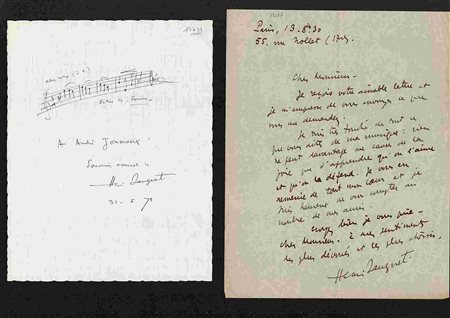 A André Jourmaux
Souvenir amical
Henri Sauguet
31-5-7
Paris, 13-8-30
55. rue Nollet (17e)
Cher Monsieur -
Je reçois votre aimable lettre et
je m'empresse de vous envoyer ce que
vous me demandez.
Je suis très touché de tout ce
que vous dites de ma musique: rien
ne peut davantage me causer de la
joie que d'apprendre qu'on l'aime
et qu'on la défend. Je vous en
remercie de tout mon cœur et je
suis heureux de vous compter au
nombre de mes amis.
Croyez bien je vous prie -
cher Monsieur. à mes sentiments
les plus dévoués et les plus choisis.
Henri Sauguet